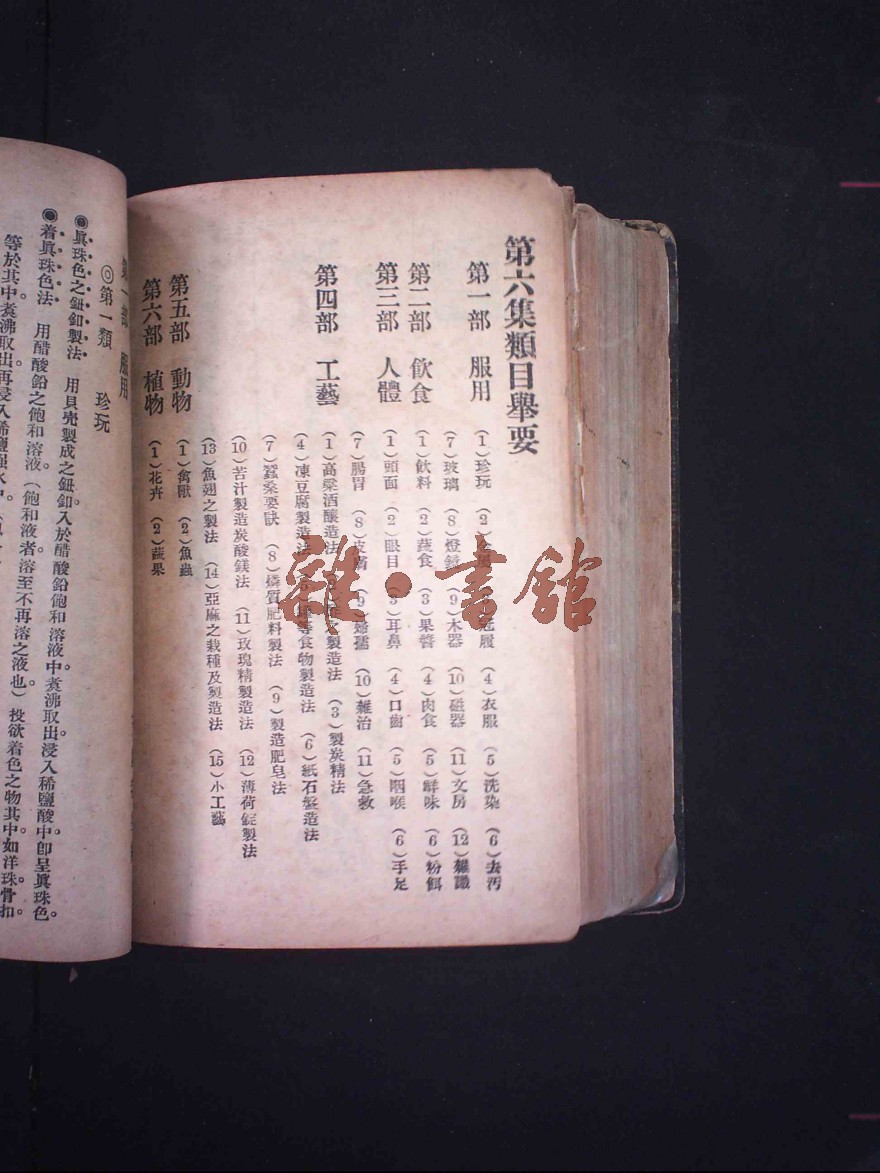 第六集類目舉要
第一部 服用
(1)珍玩 (2) (3)冠履 (4)衣服 (5)洗染 (6)去汚
(7)玻璃 (8)燈鏡 (9)木器 (10)磁器 (11)文房 (12)雜識
第二部 飲食
(1)飲料 (2)蔬食 (3)果醬 (4)肉食 (5)鮮味 (6)粉餌
第三部 人體
(1)頭面 (2)眼目 (3)耳鼻 (4)口齒 (5)咽喉 (6)手足
(7)腸胃 (8)皮膚 (9)婦孺 (10)雜治 (11)急救
第四部 工藝
(1)高粱酒釀造法 之製造法 (3)製炭精法
(4)凍豆腐製造法 等食物製造法 (6)紙石盤造法
(7)蠶桑要訣 (8)燐質肥料製法 (9)製造肥皂法
(10)苦汁製造炭酸鎂法 (11)玫瑰精製造法 (12)薄荷錠製法
(13)魚翅之製法 (14)亞麻之栽種及製造法 (15)小工藝
第五部 動物
(1)禽獸 (2)魚蟲
第六部 植物
(1)花卉 (2)蔬果
雜·書館
第一部 服用
◎第一類 珍玩
◉眞珠色之鈕釦製法 用貝壳製成之鈕釦入於醋酸鉛飽和溶液中煑沸取出浸入稀鹽酸中卽呈眞珠色。
◉着眞珠色法 用醋酸鉛之飽和溶液(飽和液者溶至不再溶之液也)投欲着色之物其中如洋珠骨扣
等於其中煑沸取出再浸入稀鹽强水中。